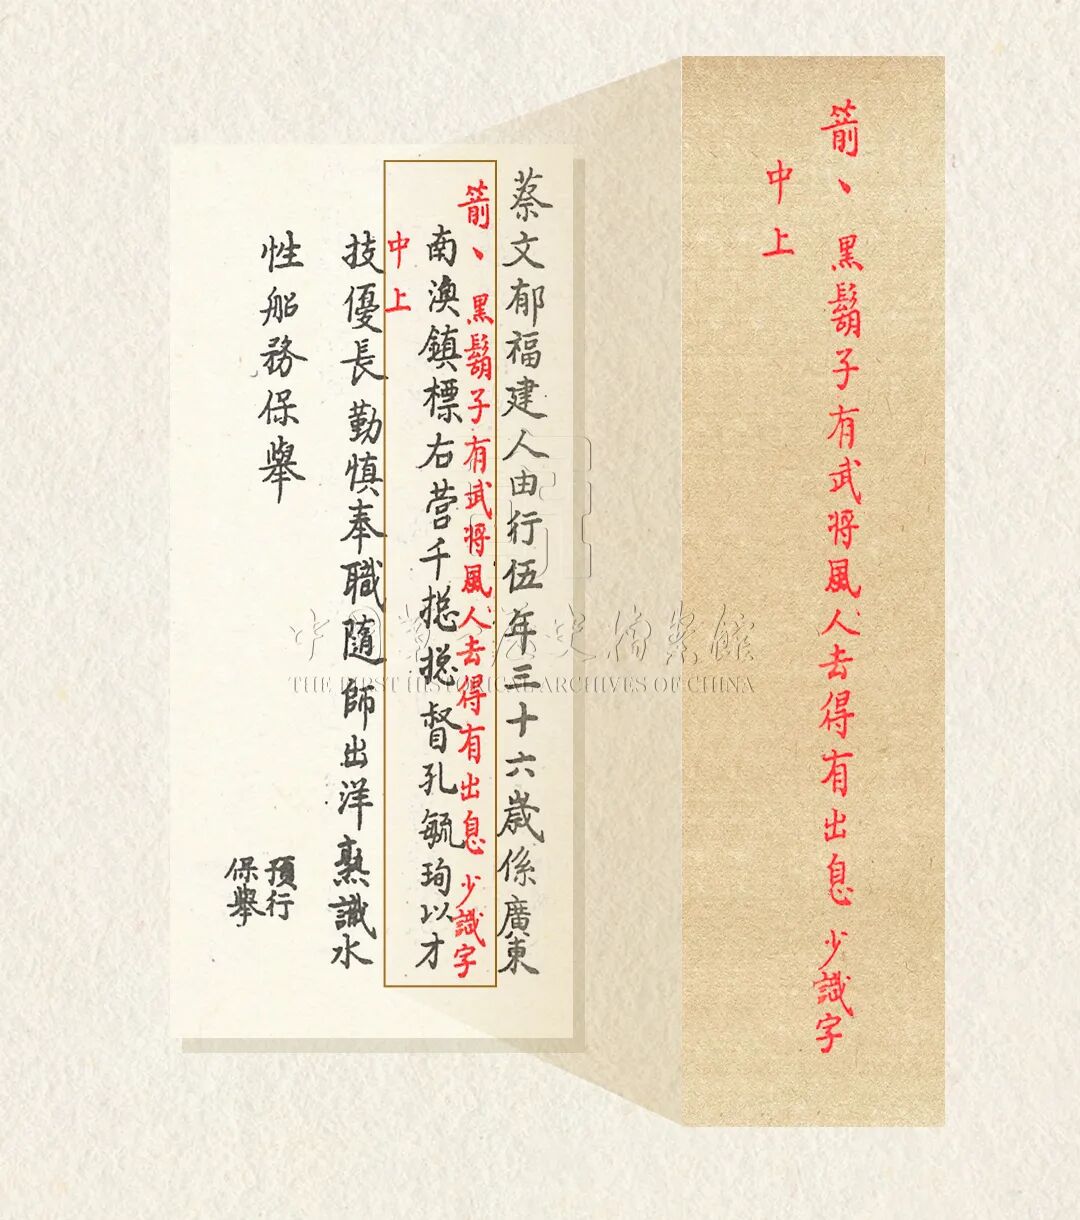 蔡文郁福建人由行伍年三十六歲係廣東
箭、黑鬍子有武將風人去得有出息 少識字
南澳鎮標右营千摠摠督孔毓珣以才
中上
技優長勤慎奉職隨師出洋熟識水
性船務保舉
預行
保舉
箭、黑鬍子有武將風人去得有出息 少識字
中上
中国第一历史档案館
THE FIRST HISTORICAL ARCHIVES OF CHINA